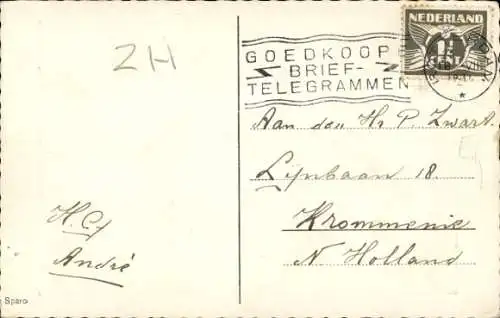 ZH
GOEDKOOP
BRIEF-
TELEGRAMMEN
NEDERLAND
Aan den Hr P. Zwart.
Lijnbaan 18.
Krommenie
N Holland
H. Gr
André
Sparo